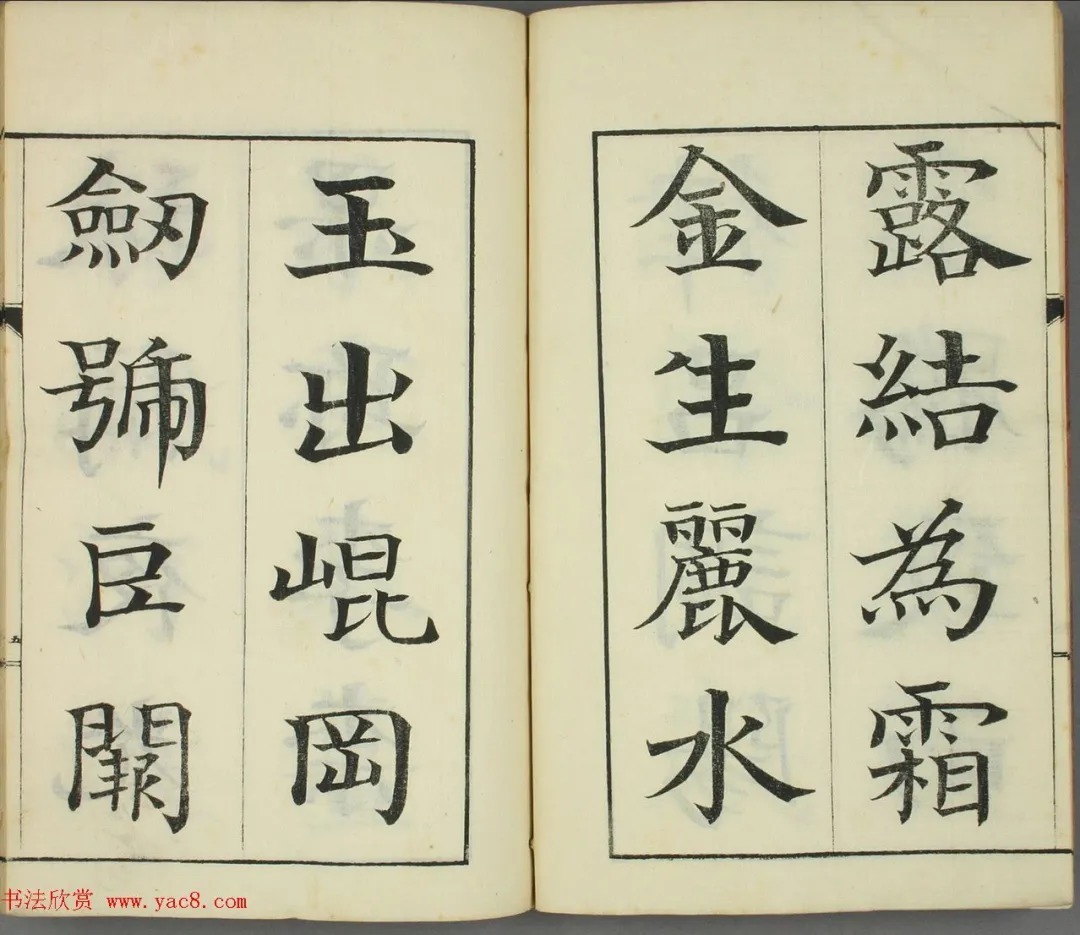 露結為霜
金生麗水
玉出崐岡
劔號巨闕
五
书法欣赏 www.yac8.com